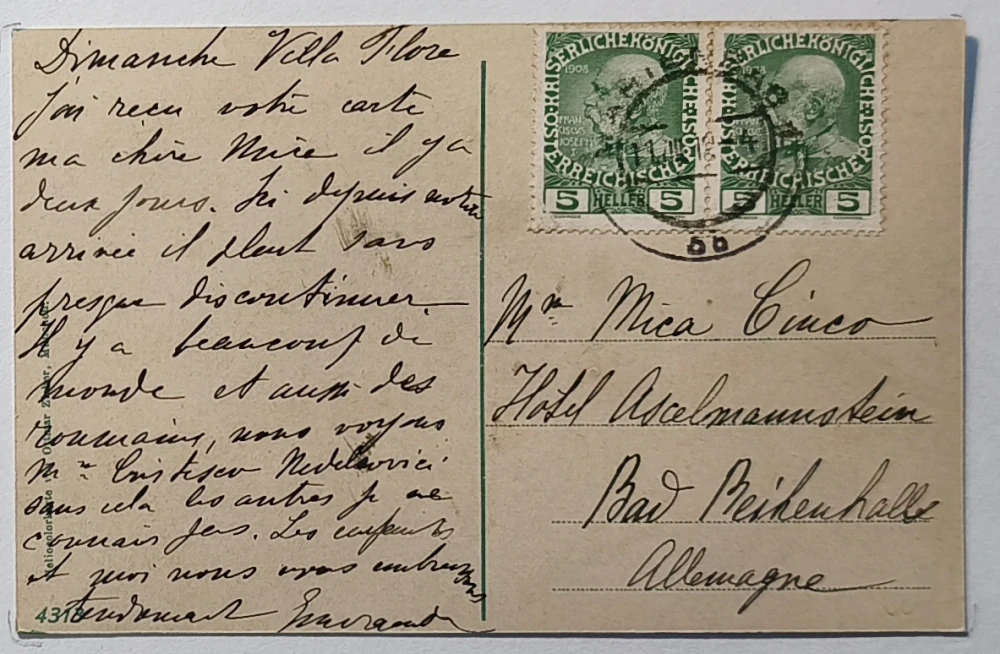 Dimanche Villa Flore
J'ai reçu votre carte
ma chère Mica il y a
deux jours. Ici depuis notre
arrivée il pleut sans
presque discontinuer
Il y a beaucoup de
monde et aussi des
roumains, nous voyons
Mme Cristesco Nedelcovici
sans cela les autres je ne
connais pas. Les enfants
et moi nous vous embrassons
tendrement
4318
Heliocolorkarte Ottmar Zieher,
ÖSTERREICHISCHE POST
KAISERLICHE KÖNIGLICHE
1908
FRANCISCUS JOSEPH I
5 HELLER 5
ÖSTERREICHISCHE POST
KAISERLICHE KÖNIGLICHE
1908
5 HELLER 5
Mme Mica Cinco
Hôtel Ascelmannstein
Bad Reihenhalle
Allemagne